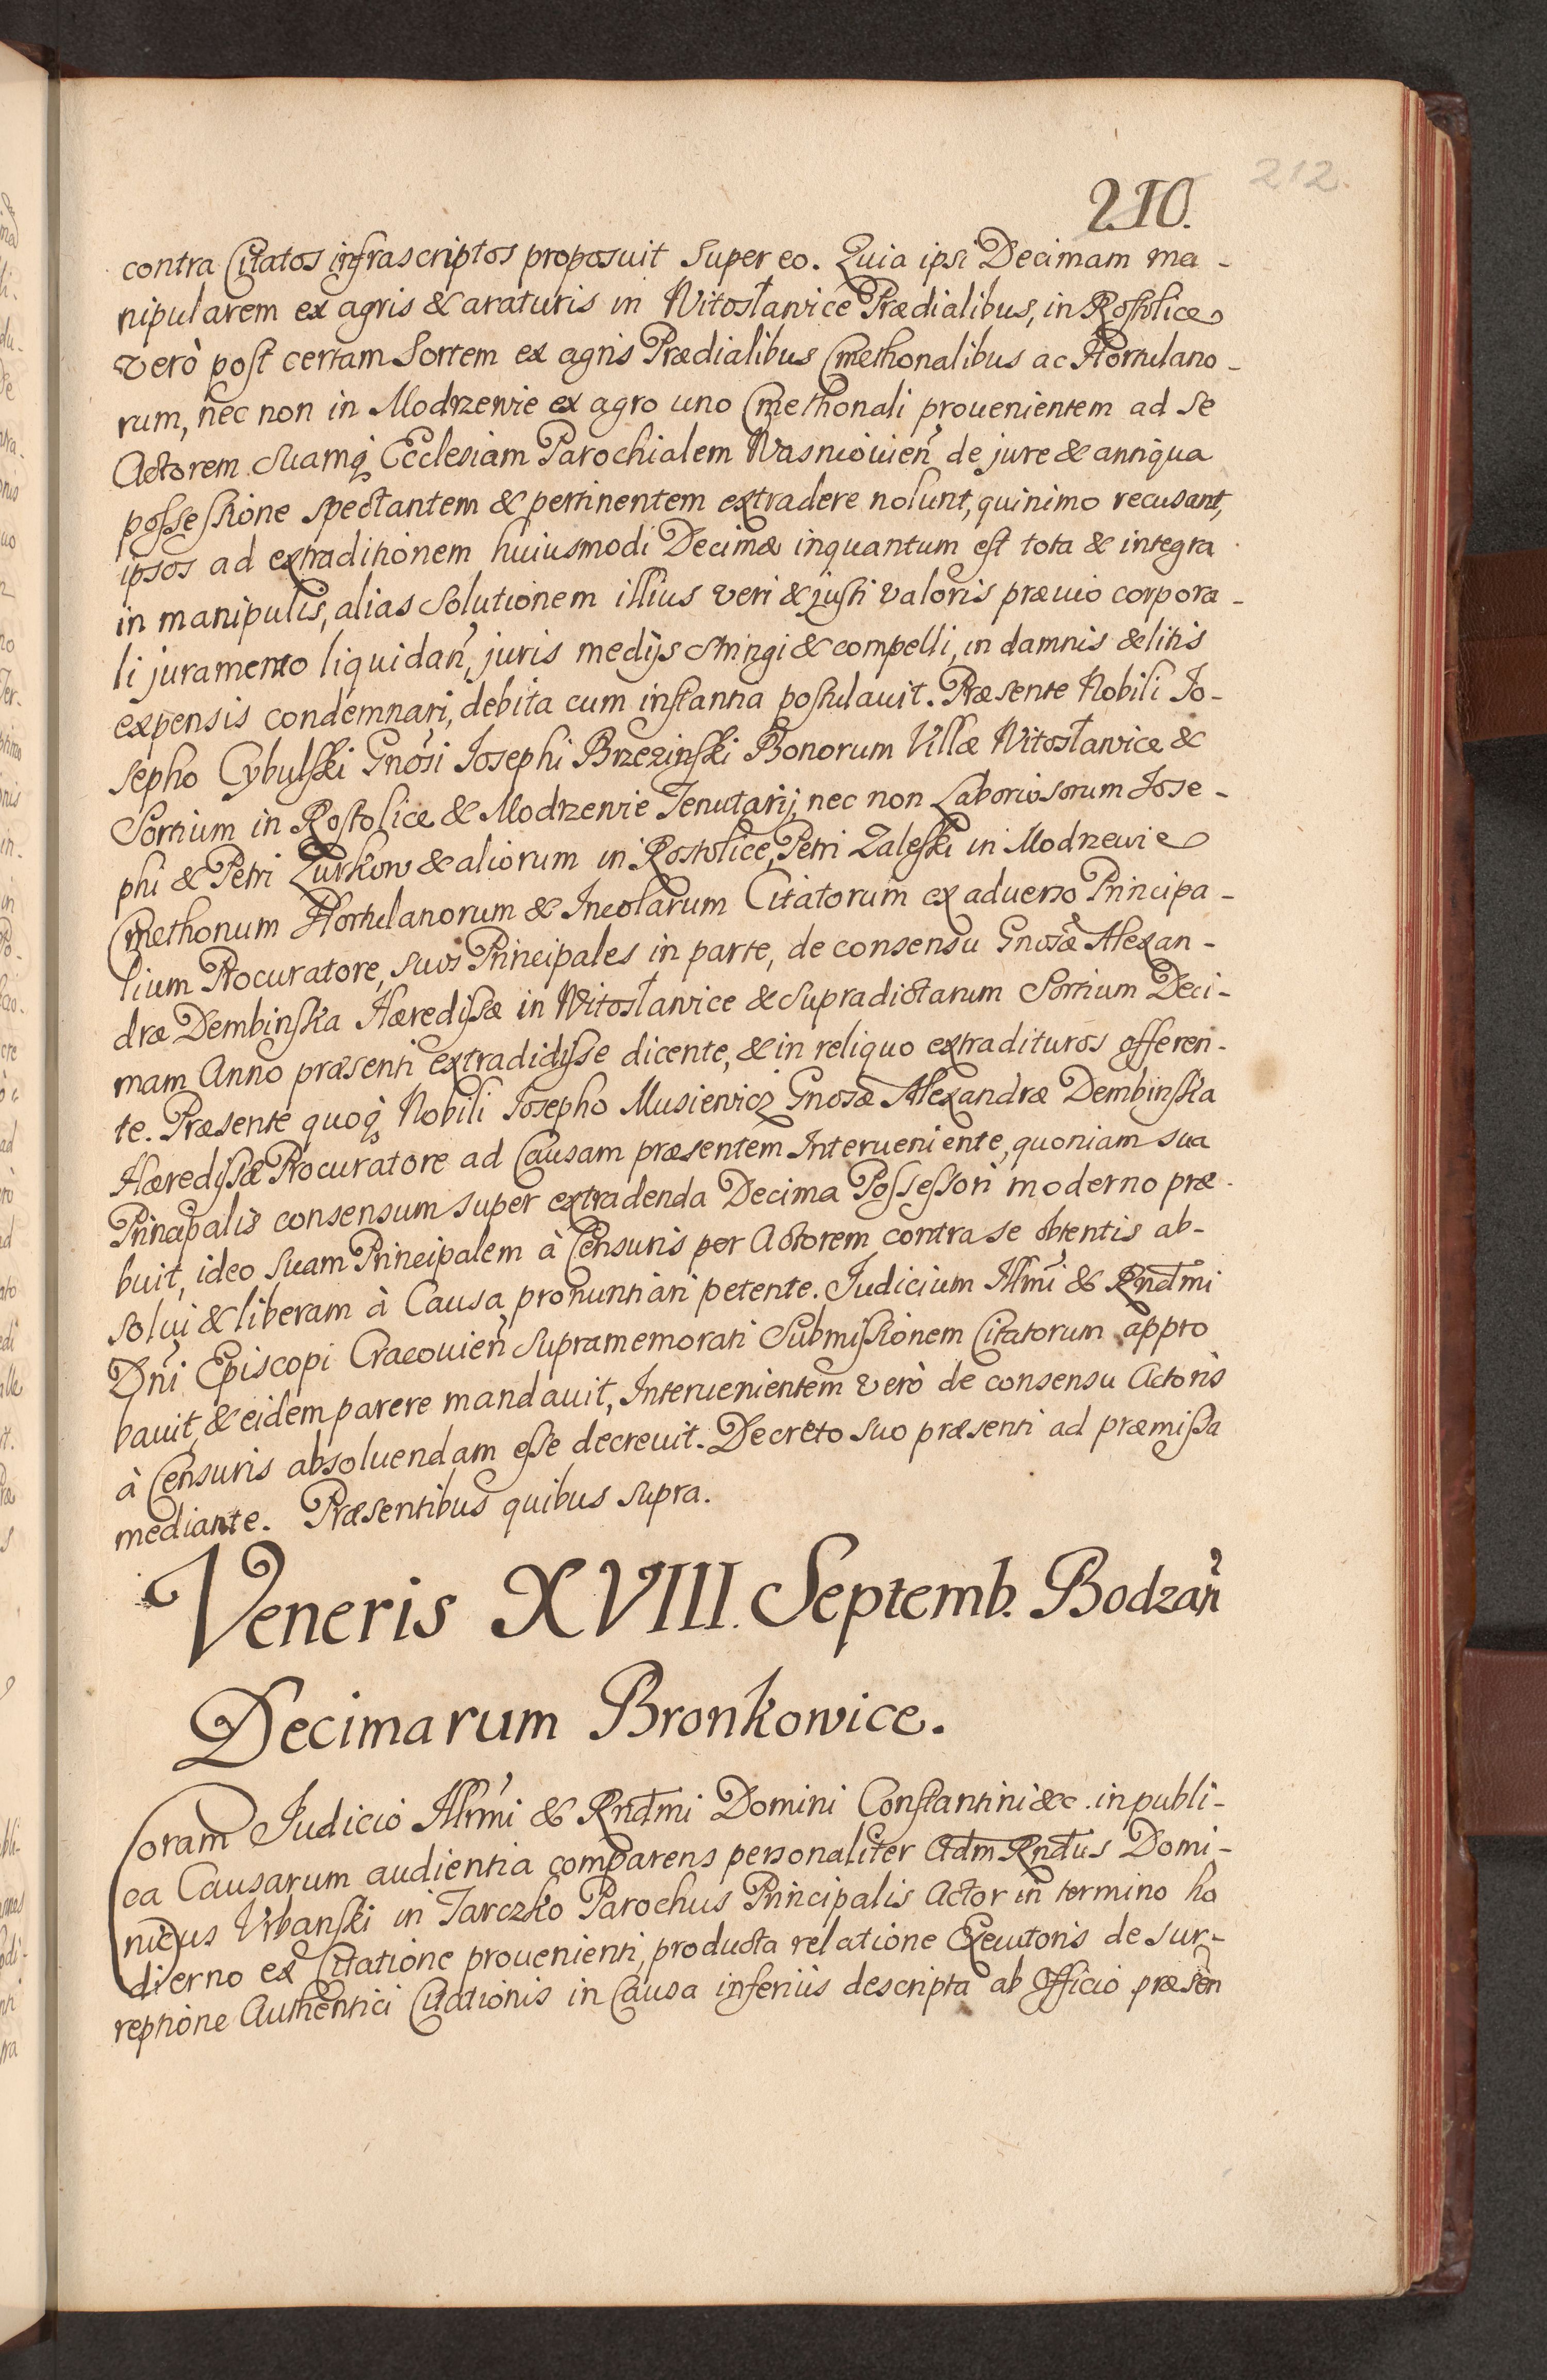 212.
210.
contra Citatos infrascriptos proposuit super eo. Quia ipsi Decimam ma-
nipularem ex agris & araturis in Witosławice Prædialibus, in Rostolice
verò post certam Sortem ex agris Prædialibus Cmethonalibus ac Hortulano-
rum, nec non in Modrzewie ex agro uno Cmethonali prouenientem ad se
Actorem suamq Ecclesiam Parochialem Wasniouień de jure & antiqua
possessione spectantem & pertinentem extradere nolunt, quinimo recusant,
ipsos ad extraditionem huiusmodi Decimæ inquantum est tota & integra
in manipulis, alias solutionem illius veri & justi valoris præuio corpora-
li juramento liquidań, juris medijs stringi & compelli, in damnis & litis
expensis condemnari, debita cum instantia postulauit. Præsente Nobili Jo-
sepho Cybulski Gnósi Josephi Brzezinski Bonorum Villæ Witosławice &
Sortium in Rostolice & Modrzewie Tenutarij, nec non Laboriosorum Jose-
phi & Petri Zurkow & aliorum in Rostolice, Petri Zaleski in Modrzewie
Cmethonum Hortulanorum & Incolarum Citatorum ex aduerso Principa-
lium Procuratore, suos Principales in parte, de consensu Gnosæ Alexan-
dræ Dembinska Hæredissæ in Witosławice & supradictarum Sortium Deci-
mam Anno præsenti extradidisse dicente, & in reliquo extradituros offeren-
te. Præsente quoq Nobili Josepho Musiewicz Gnosæ Alexandræ Dembinska
Hæredissæ Procuratore ad Causam præsentem Interueniente, quoniam sua
Principalis consensum super extradenda Decima Possessori moderno præ-
buit, ideo suam Principalem à Censuris per Actorem contra se obtentis ab-
solui & liberam à Causa pronuntiari petente. Judicium Illmi & Rndmi
Dni Episcopi Cracouień supramemorati Submissionem Citatorum appro
bauit, & eidem parere mandauit, Interuenientem verò de consensu Actoris
à Censuris absoluendam esse decreuit. Decreto suo præsenti ad præmissa
mediante. Præsentibus quibus supra.
Veneris XVIII. Septemb. Bodzań
Decimarum Bronkowice.
Coram Judicio Illmi & Rndmi Domini Constantini &c. in publi-
ca Causarum audientia comparens personaliter Adm Rndus Domi-
nicus Vrbanski in Tarczko Parochus Principalis Actor in termino ho
dierno ex Citatione prouenienti, producta relatione Exeutoris de sur-
reptione Authentici Citationis in Causa inferiùs descripta ab Officio præsen